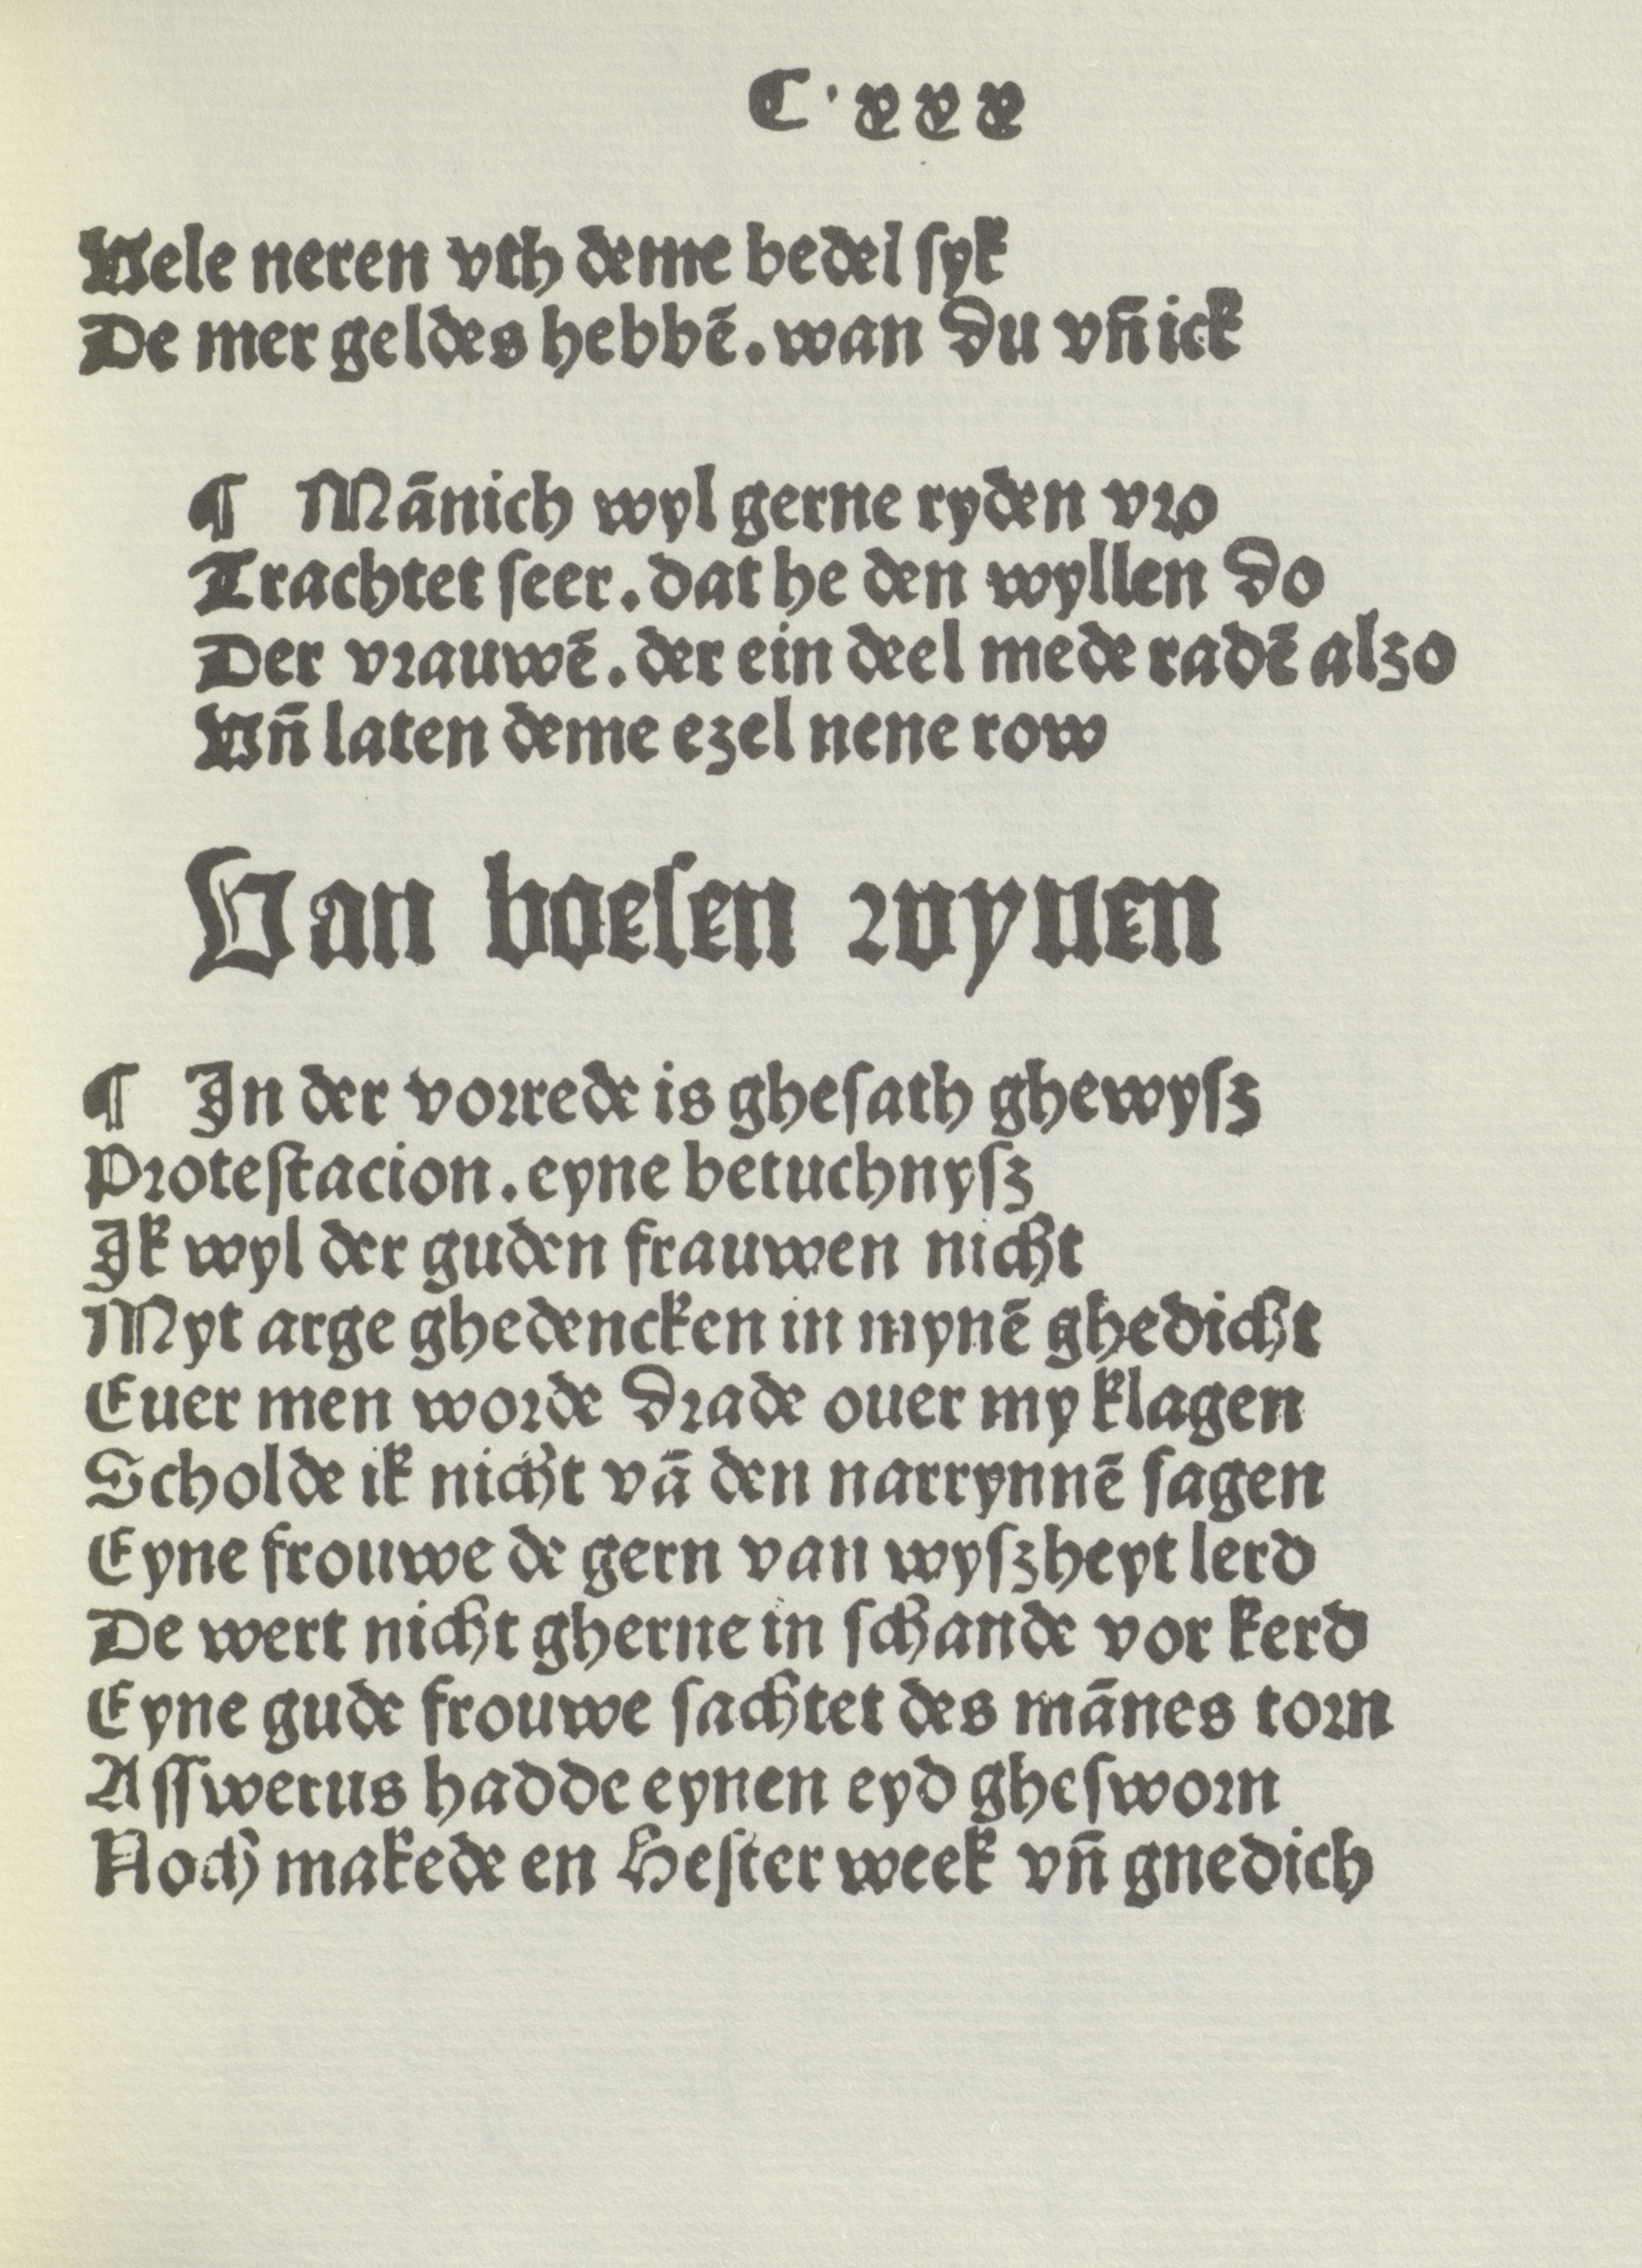 C·xxx
Vele neren vth deme bedel ſyk
De mer geldes hebbē. wan du vn̄ ick
¶ Mānich wyl gerne ryden vꝛo
Trachtet ſeer. dat he den wyllen do
Der vꝛauwē. der ein deel mede radē alzo
Vn̄ laten deme ezel nene row
Van boeſen wyuen
¶ In der voꝛrede is gheſath ghewyſz
Pꝛoteſtacion. eyne betuchnyſz
Ik wyl der guden frauwen nicht
Myt arge ghedencken in mynē ghedicht
Euer men woꝛde dꝛade ouer my klagen
Scholde ik nicht vā den narrynnē ſagen
Eyne frouwe de gern van wyſzheyt lerd
De wert nicht gherne in ſchande vor kerd
Eyne gude frouwe ſachtet des mānes toꝛn
Aſſwerus hadde eynen eyd gheſwoꝛn
Noch makede en Heſter week vn̄ gnedich